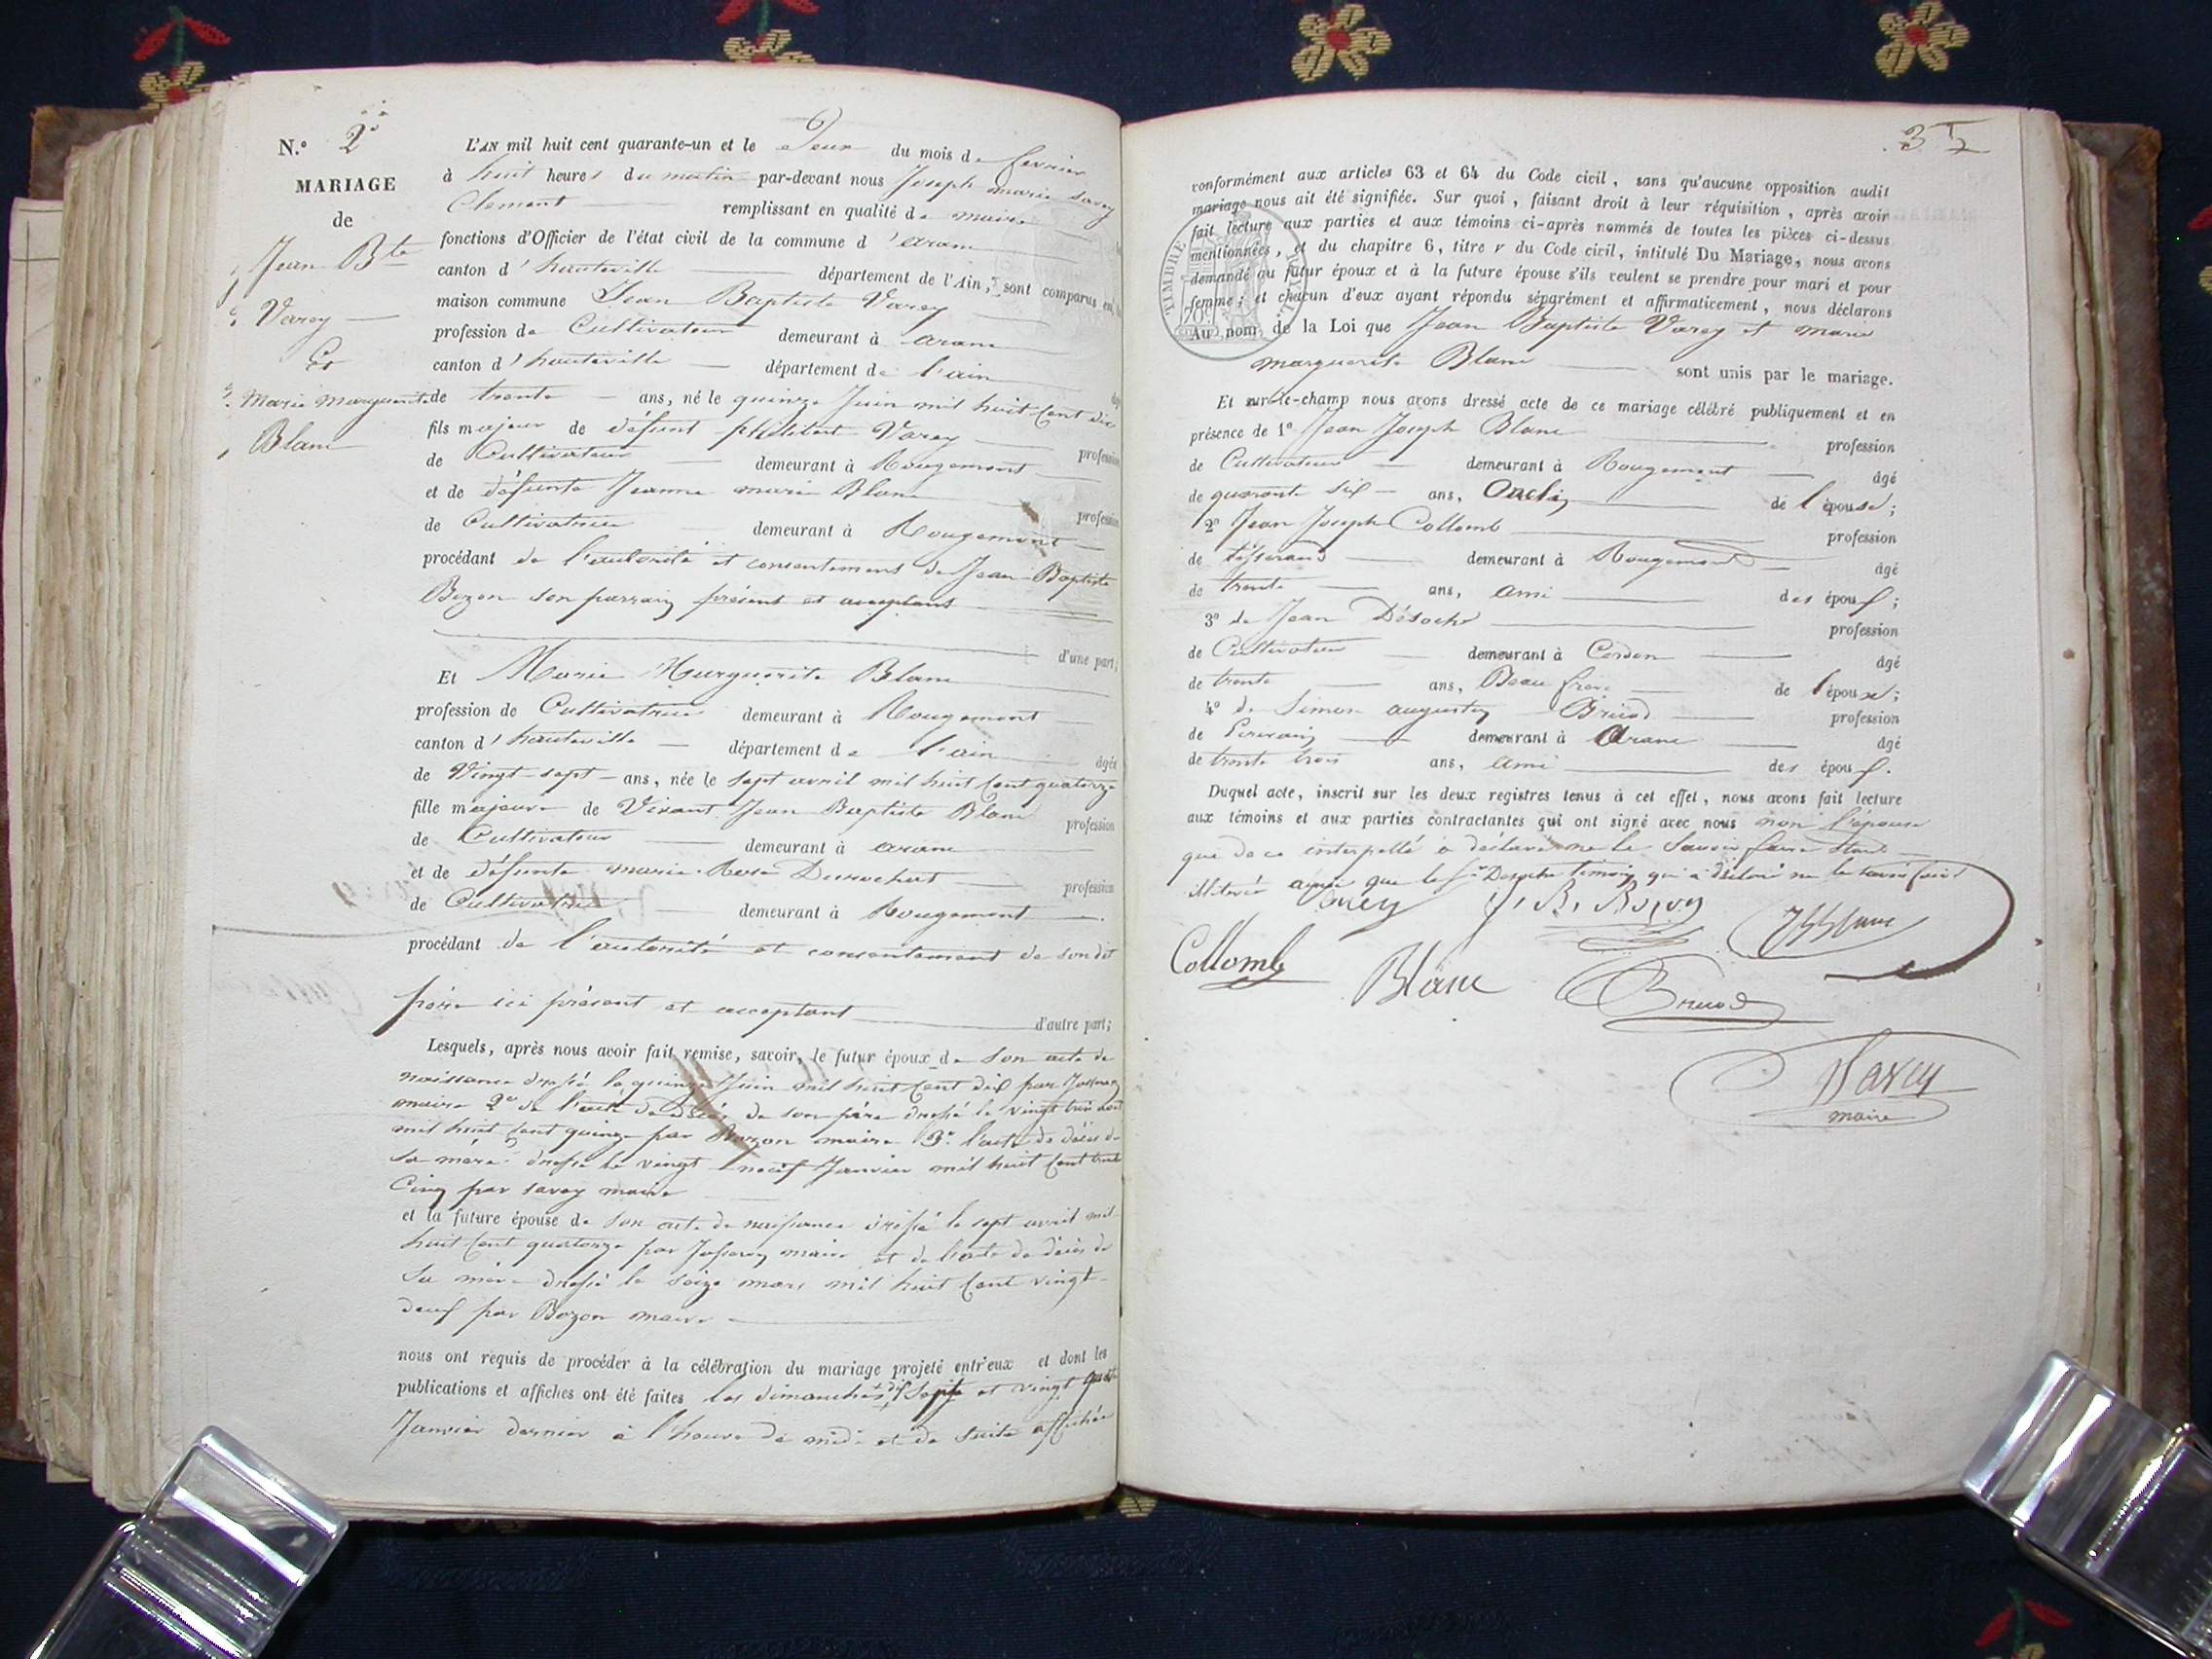 N.º 2
MARIAGE
de
Jean Bte
Varey
Et
Marie Marguerite
Blanc
L'AN mil huit cent quarante-un et le Deux du mois de fevrier
à huit heures du matin par-devant nous Joseph marie savey
Clement remplissant en qualité de maire
fonctions d'Officier de l'état civil de la commune d'arane
canton d'hauteville département de l'Ain, sont comparus en
maison commune Jean Baptiste Varey
profession de Cultivateur demeurant à arane
canton d'hauteville département de l'ain
de trente ans, né le quinze Juin mil huit Cent dix
fils majeur de défunt philibert Varey
de Cultivateur demeurant à Rougemont profession
et de défunte Jeanne marie Blanc
de Cultivatrice demeurant à Rougemont profession
procédant de l'autorité et consentement de Jean Baptiste
Bozon son parrain présent et acceptant
d'une part;
Et Marie Marguerite Blanc
profession de Cultivatrice demeurant à Rougemont
canton d'hauteville département de l'ain âgée
de Vingt-sept ans, née le sept avril mil huit Cent quatorze
fille majeure de Vivant Jean Baptiste Blanc
de Cultivateur demeurant à arane profession
et de défunte marie Rose
de Cultivatrice demeurant à Rougemont profession
procédant de l'autorité et consentement de son dit
père ici présent et acceptant d'autre part;
Lesquels, après nous avoir fait remise, savoir, le futur époux de son acte de
naissance dressé le quinze Juin mil huit Cent dix par
maire 2º de l'acte de décès de son père dressé le vingt trois
mil huit Cent quinze par Bozon maire 3º l'acte de décès de
sa mère dressé le vingt neuf Janvier mil huit Cent trente
Cinq par savey maire
et la future épouse de son acte de naissance dressé le sept avril mil
huit Cent quatorze par maire et de l'acte de décès de
sa mère dressé le seize mars mil huit Cent vingt
par Bozon maire
nous ont requis de procéder à la célébration du mariage projeté entr'eux et dont les
publications et affiches ont été faites les dimanches dix sept et vingt quatre
Janvier dernier à l'heure de midi et de suite affichée
37
conformément aux articles 63 et 64 du Code civil, sans qu'aucune opposition audit
mariage nous ait été signifiée. Sur quoi, faisant droit à leur réquisition, après avoir
fait lecture aux parties et aux témoins ci-après nommés de toutes les pièces ci-dessus
mentionnées, et du chapitre 6, titre v du Code civil, intitulé Du Mariage, nous avons
demandé au futur époux et à la future épouse s'ils veulent se prendre pour mari et pour
femme; et chacun d'eux ayant répondu séparément et affirmativement, nous déclarons
Au nom de la Loi que Jean Baptiste Varey et marie
marguerite Blanc sont unis par le mariage.
TIMBRE ROYAL
Et sur-le-champ nous avons dressé acte de ce mariage célébré publiquement et en
présence de 1º Jean Joseph Blanc profession
de Cultivateur demeurant à Rougemont âgé
de quarante six ans, Oncle de l'épouse;
2º Jean Joseph Collomb profession
de tisserand demeurant à Rougemont âgé
de trente ans, ami des époux;
3º de Jean profession
de Cultivateur demeurant à Cerdon âgé
de trente ans, Beau frère de l'époux;
4º de Simon augustin profession
de Ecrivain demeurant à Arane âgé
de trente trois ans, ami des époux.
Duquel acte, inscrit sur les deux registres tenus à cet effet, nous avons fait lecture
aux témoins et aux parties contractantes qui ont signé avec nous non l'épouse
que de ce interpellé a déclaré ne le savoir faire étant
illiterée ainsi que le témoin qui a déclaré ne le savoir faire
Varey J. B. Bozon
Collomb Blanc
Savey
maire